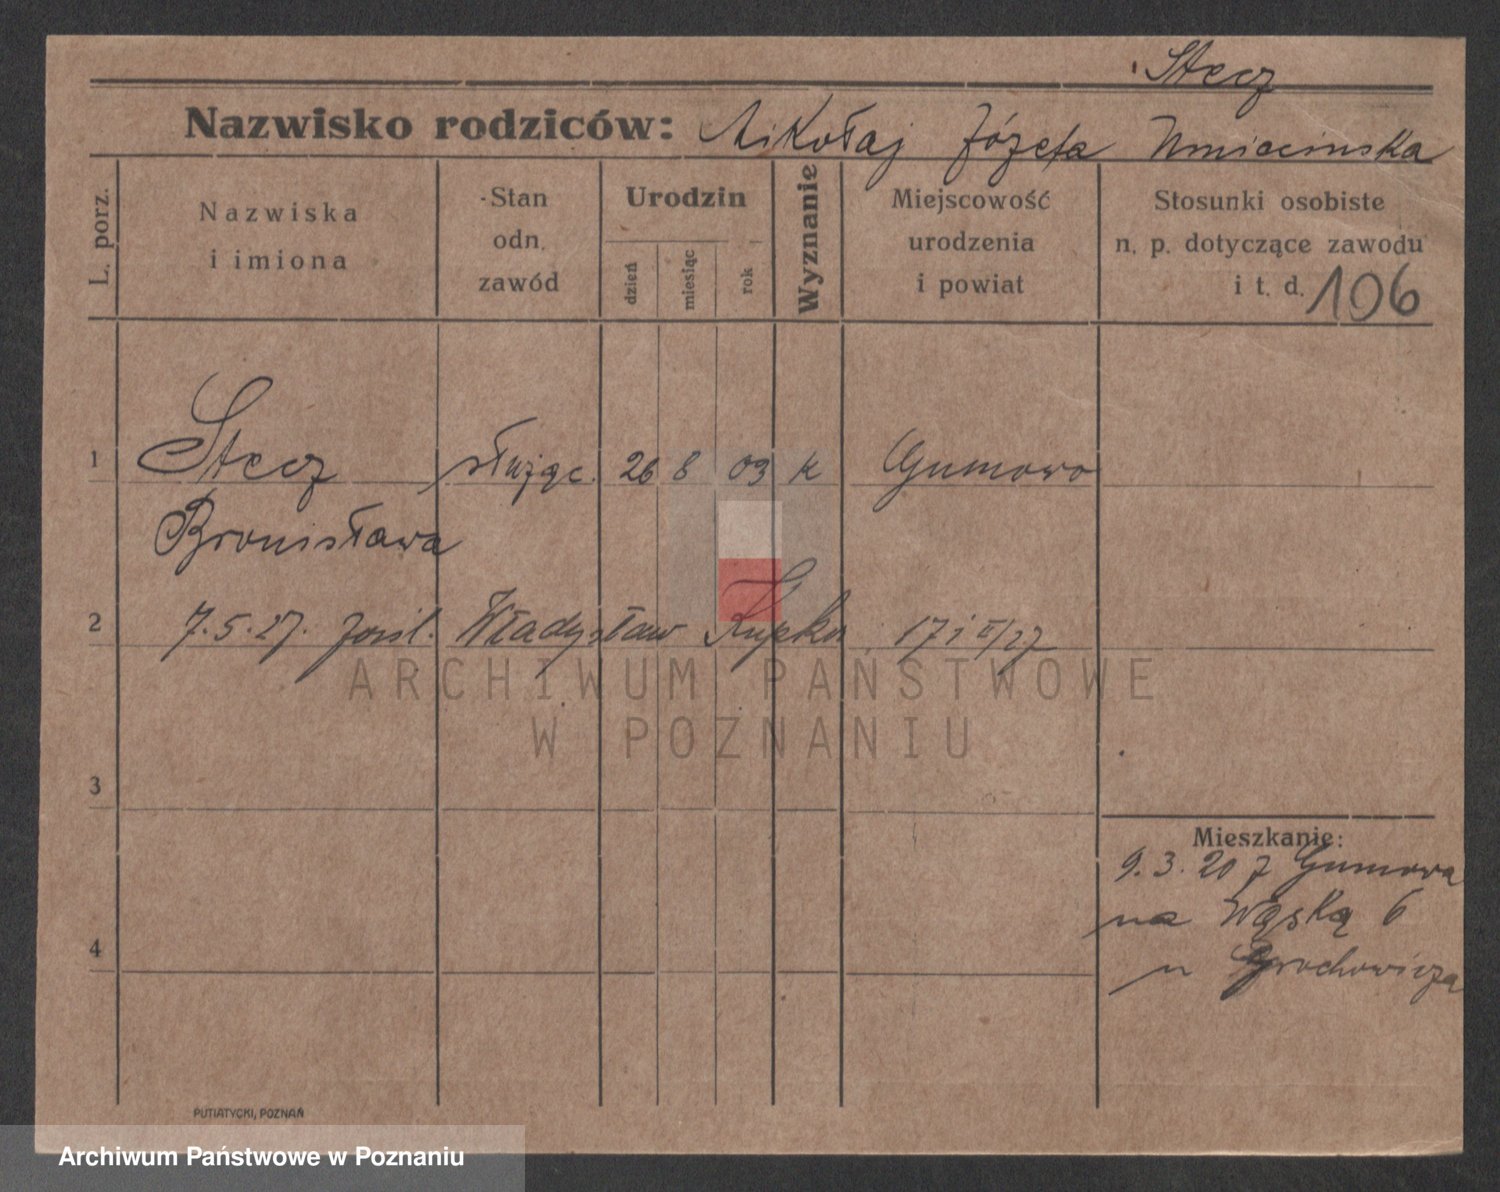 Stecz
Nazwisko rodziców: Mikołaj Józefa
L. porz.
Nazwiska i imiona
Stan odn. zawód
Urodzin
dzień
miesiąc
rok
Wyznanie
Miejscowość urodzenia i powiat
Stosunki osobiste n. p. dotyczące zawodu i t. d. 106
1 Stecz służąc. 26 8 03 k Gumowo
Bronisława
2 7.5.27. Władysław
3
Mieszkanie:
9.3.20 z Gumowa
na Wąską 6
u Grochowicza
4
ARCHIWUM PAŃSTWOWE
W POZNANIU
PUTIATYCKI, POZNAŃ
Archiwum Państwowe w Poznaniu